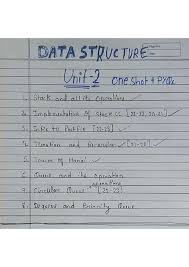 DATA STRUCTURE
Unit-2 one shot + PYQs
1. Stack and its operations
2. Implementation of Stack [22-23, 20-21]
3. Infix to Postfix [22-23]
4. Iteration and Recursion [21-22]
5. Tower of Hanoi
6. Queue and its operation
7. Circular Queue [22-23]
8. Dequeue and Priority Queue